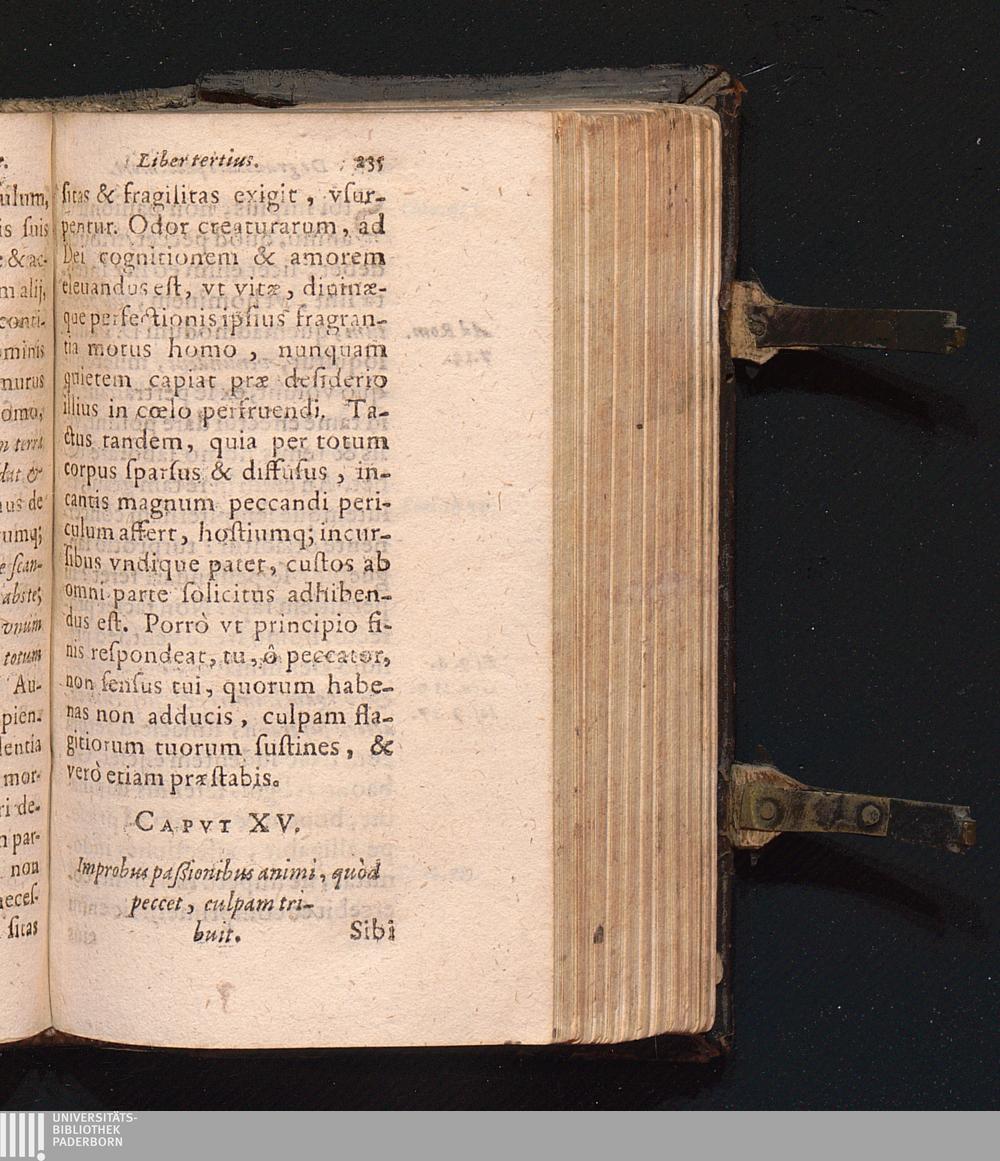 Liber tertius. 235
ſitas & fragilitas exigit, vſur-
pentur. Odor creaturarum, ad
Dei cognitionem & amorem
eleuandus eſt, vt vitæ, diuinæ-
que perfectionis ipſius fragran-
tia motus homo, nunquam
quietem capiat præ deſiderio
illius in cœlo perfruendi. Ta-
ctus tandem, quia per totum
corpus ſparſus & diffuſus, in-
cantis magnum peccandi peri-
culum affert, hoſtiumq; incur-
ſibus vndique patet, cuſtos ab
omni parte ſolicitus adhiben-
dus eſt. Porrò vt principio fi-
nis reſpondeat, tu, ô peccator,
non ſenſus tui, quorum habe-
nas non adducis, culpam fla-
gitiorum tuorum ſuſtines, &
verò etiam præſtabis.
CAPVT XV.
Improbus paſſionibus animi, quòd
peccet, culpam tri-
buit. Sibi
ulum,
is ſuis
e & ac-
m alij,
conti-
ominis
murus
omo,
n terra
dat &
ius de
rumq;
e ſcan-
abste;
vnum
totum
Au-
pien-
lentia
mor-
ri de-
n par-
non
neceſ-
ſitas
UNIVERSITÄTS-
BIBLIOTHEK
PADERBORN